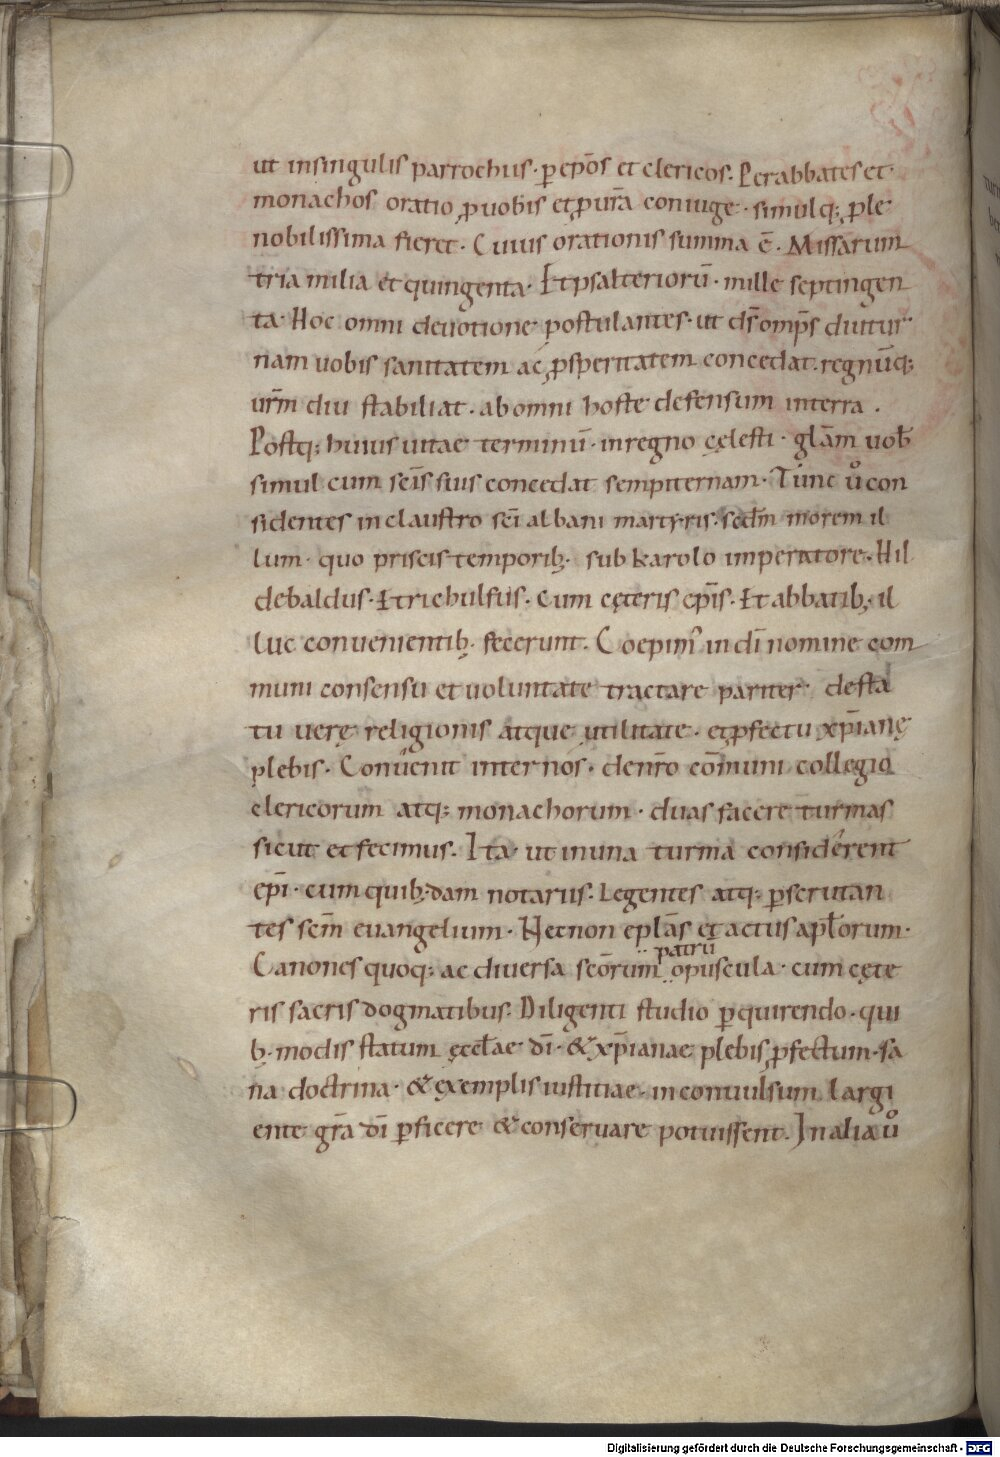 ut insingulis parrochiis · ꝑ epōs et clericos. Per abbates et
monachos oratio ꝓ uobis et ꝓ ur̄a coniuge · simulq; ꝓle
nobilissima fieret · Cuius orationis summa ē · Missarum
tria milia et quingenta · Et psalteriorū · mille septingen
ta · Hoc omni deuotione postulantes · ut dr̄ omp̄s diutur
nam uobis sanitatem ac ꝓsperitatem concedat · regnūq;
ur̄m diu stabiliat · ab omni hoste defensum interra .
Postq; huius uitae terminū · inregno cęlesti · glām uob̄
simul cum scīs suis concedat sempiternam · Tunc uͦ con
sidentes inclaustro scī albani martyris · scdm̄ morem il
lum · quo priscis temporib; · sub karolo imperatore · Hil
debaldus · Et richulfus · Cum cęteris ep̄is · Et abbatib; il
luc conuenientib; · fecerunt · Coepim' in dī nomine com
muni consensu et uoluntate tractare pariter · de sta
tu uerę religionis atque utilitate · et ꝓfectu xp̄ianę
plebis · Conuenit inter nos · de nr̄o cōmuni collegio
clericorum atq; monachorum · duas facere turmas
sicut et fecimus · Ita · ut inuna turma considerent
ep̄i · cum quib;dam notariis · Legentes atq; ꝑscrutan
tes scm̄ euangelium · Necnon eplās et actus apl̄orum ·
patrū
Canones quoq; ac diuersa scōrum opuscula · cum cęte
ris sacris dogmatibus · Diligenti studio ꝑquirendo · qui
b; · modis statum ęccl̄ae dī · & xp̄ianae plebis ꝓfectum · sa
na doctrina · & exemplis iustitiae · inconuulsum largi
ente gr̄a dī ꝑficere & conseruare potuissent · In alia uͦ
Digitalisierung gefördert durch die Deutsche Forschungsgemeinschaft - DFG